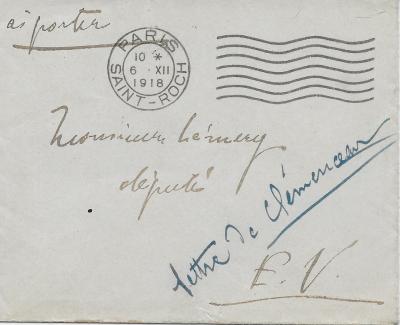 à porter
PARIS
10 *
6 · XII
1918
SAINT-ROCH
Monsieur Lémery
député
lettre de Clémenceau
E.V.